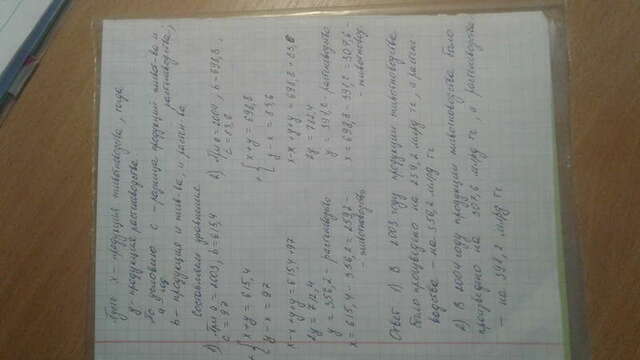 Пусть x – продукция животноводства, тогда
y – продукция растениеводства.
По условию c – разница продукций живот-ва и
a – год растениеводства;
b – продукция и жив-ва, и растен-ва
Составим уравнение
1) При a = 2003, b = 615,4
c = 97
{ x + y = 615,4
+ { y – x = 97
x – x + y + y = 615,4 + 97
2y = 712,4
y = 356,2 – растениеводство
x = 615,4 – 356,2 = 259,2 –
– животноводство
2) При a = 2004, b = 698,8,
c = 83,6
{ x + y = 698,8
+ { y – x = 83,6
x – x + y + y = 698,8 + 83,6
2y = 782,4
y = 391,2 – растениеводство
x = 698,8 – 391,2 = 307,6 –
– животновод.
Ответ: 1) В 2003 году продукции животноводства
было произведено на 259,2 млрд тг, а растение
водства – на 356,2 млрд тг
2) В 2004 году продукции животноводства было
произведено на 307,6 млрд тг, а растениеводства
– на 391,2 млрд тг